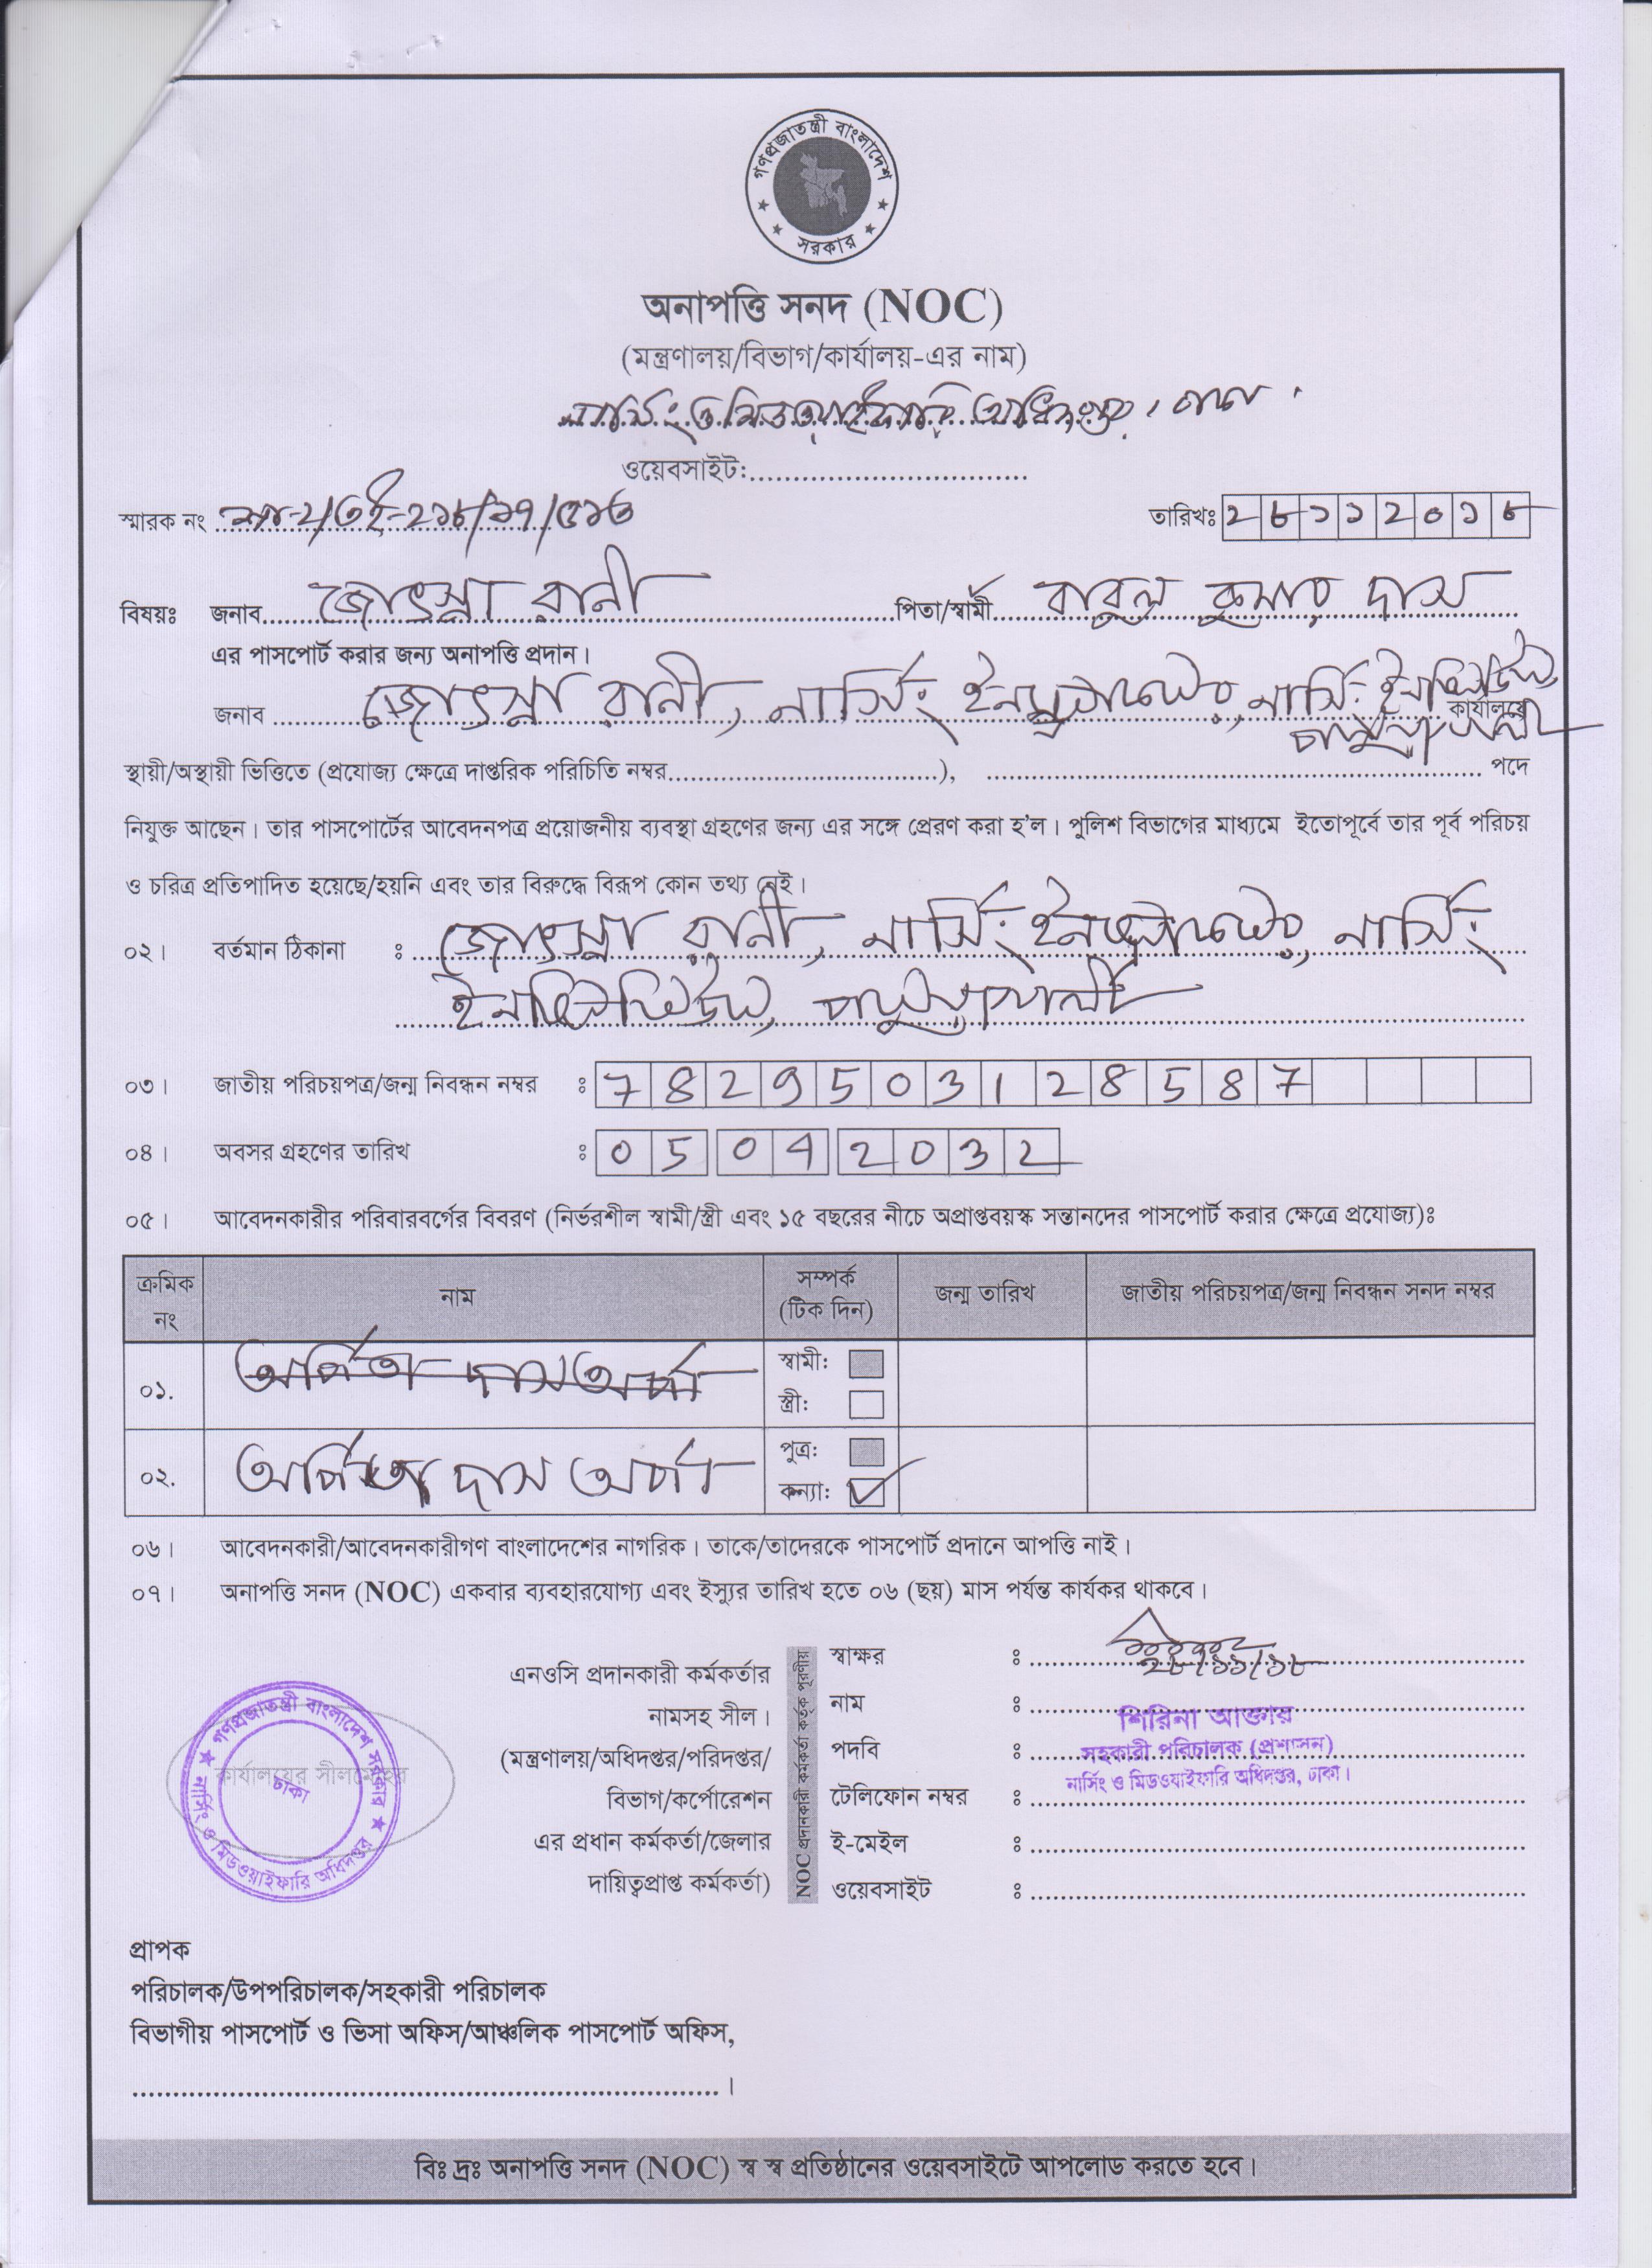 গণপ্রজাতন্ত্রী বাংলাদেশ
সরকার
অনাপত্তি সনদ (NOC)
(মন্ত্রণালয়/বিভাগ/কার্যালয়-এর নাম)
নার্সিং ও মিডওয়াইফারি অধিদপ্তর, ঢাকা।
ওয়েবসাইট:
স্মারক নং
তারিখঃ ২৮১১২০১৮
বিষয়ঃ জনাব জোৎস্না রানী পিতা/স্বামী বাবুল কুমার দাস
এর পাসপোর্ট করার জন্য অনাপত্তি প্রদান।
জনাব জোৎস্না রানী, নার্সিং ইনস্ট্রাক্টর, নার্সিং ইনস্টিটিউট, পটুয়াখালী কার্যালয়ে
স্থায়ী/অস্থায়ী ভিত্তিতে (প্রযোজ্য ক্ষেত্রে দাপ্তরিক পরিচিতি নম্বর), পদে
নিযুক্ত আছেন। তার পাসপোর্টের আবেদনপত্র প্রয়োজনীয় ব্যবস্থা গ্রহণের জন্য এর সঙ্গে প্রেরণ করা হ'ল। পুলিশ বিভাগের মাধ্যমে ইতোপূর্বে তার পূর্ব পরিচয়
ও চরিত্র প্রতিপাদিত হয়েছে/হয়নি এবং তার বিরুদ্ধে বিরূপ কোন তথ্য নেই।
০২। বর্তমান ঠিকানা ঃ জোৎস্না রানী, নার্সিং ইনস্ট্রাক্টর, নার্সিং
ইনস্টিটিউট, পটুয়াখালী
০৩। জাতীয় পরিচয়পত্র/জন্ম নিবন্ধন নম্বর ঃ 7829503128587
০৪। অবসর গ্রহণের তারিখ ঃ 05042032
০৫। আবেদনকারীর পরিবারবর্গের বিবরণ (নির্ভরশীল স্বামী/স্ত্রী এবং ১৫ বছরের নীচে অপ্রাপ্তবয়স্ক সন্তানদের পাসপোর্ট করার ক্ষেত্রে প্রযোজ্য)ঃ
ক্রমিক নং নাম সম্পর্ক (টিক দিন) জন্ম তারিখ জাতীয় পরিচয়পত্র/জন্ম নিবন্ধন সনদ নম্বর
০১. অর্পিতা দাস স্বামী:
স্ত্রী:
০২. অর্পিতা দাস পুত্র:
কন্যা: ✓
০৬। আবেদনকারী/আবেদনকারীগণ বাংলাদেশের নাগরিক। তাকে/তাদেরকে পাসপোর্ট প্রদানে আপত্তি নাই।
০৭। অনাপত্তি সনদ (NOC) একবার ব্যবহারযোগ্য এবং ইস্যুর তারিখ হতে ০৬ (ছয়) মাস পর্যন্ত কার্যকর থাকবে।
গণপ্রজাতন্ত্রী বাংলাদেশ সরকার
নার্সিং ও মিডওয়াইফারি অধিদপ্তর
ঢাকা
কার্যালয়ের সীলমোহর
এনওসি প্রদানকারী কর্মকর্তার
নামসহ সীল।
(মন্ত্রণালয়/অধিদপ্তর/পরিদপ্তর/
বিভাগ/কর্পোরেশন
এর প্রধান কর্মকর্তা/জেলার
দায়িত্বপ্রাপ্ত কর্মকর্তা)
NOC প্রদানকারী কর্মকর্তা কর্তৃক পূরণীয়
স্বাক্ষর ঃ ২৮/১১/১৮
নাম ঃ শিরিনা আক্তার
পদবি ঃ সহকারী পরিচালক (প্রশাসন)
নার্সিং ও মিডওয়াইফারি অধিদপ্তর, ঢাকা।
টেলিফোন নম্বর ঃ
ই-মেইল ঃ
ওয়েবসাইট ঃ
প্রাপক
পরিচালক/উপপরিচালক/সহকারী পরিচালক
বিভাগীয় পাসপোর্ট ও ভিসা অফিস/আঞ্চলিক পাসপোর্ট অফিস,
।
বিঃ দ্রঃ অনাপত্তি সনদ (NOC) স্ব স্ব প্রতিষ্ঠানের ওয়েবসাইটে আপলোড করতে হবে।